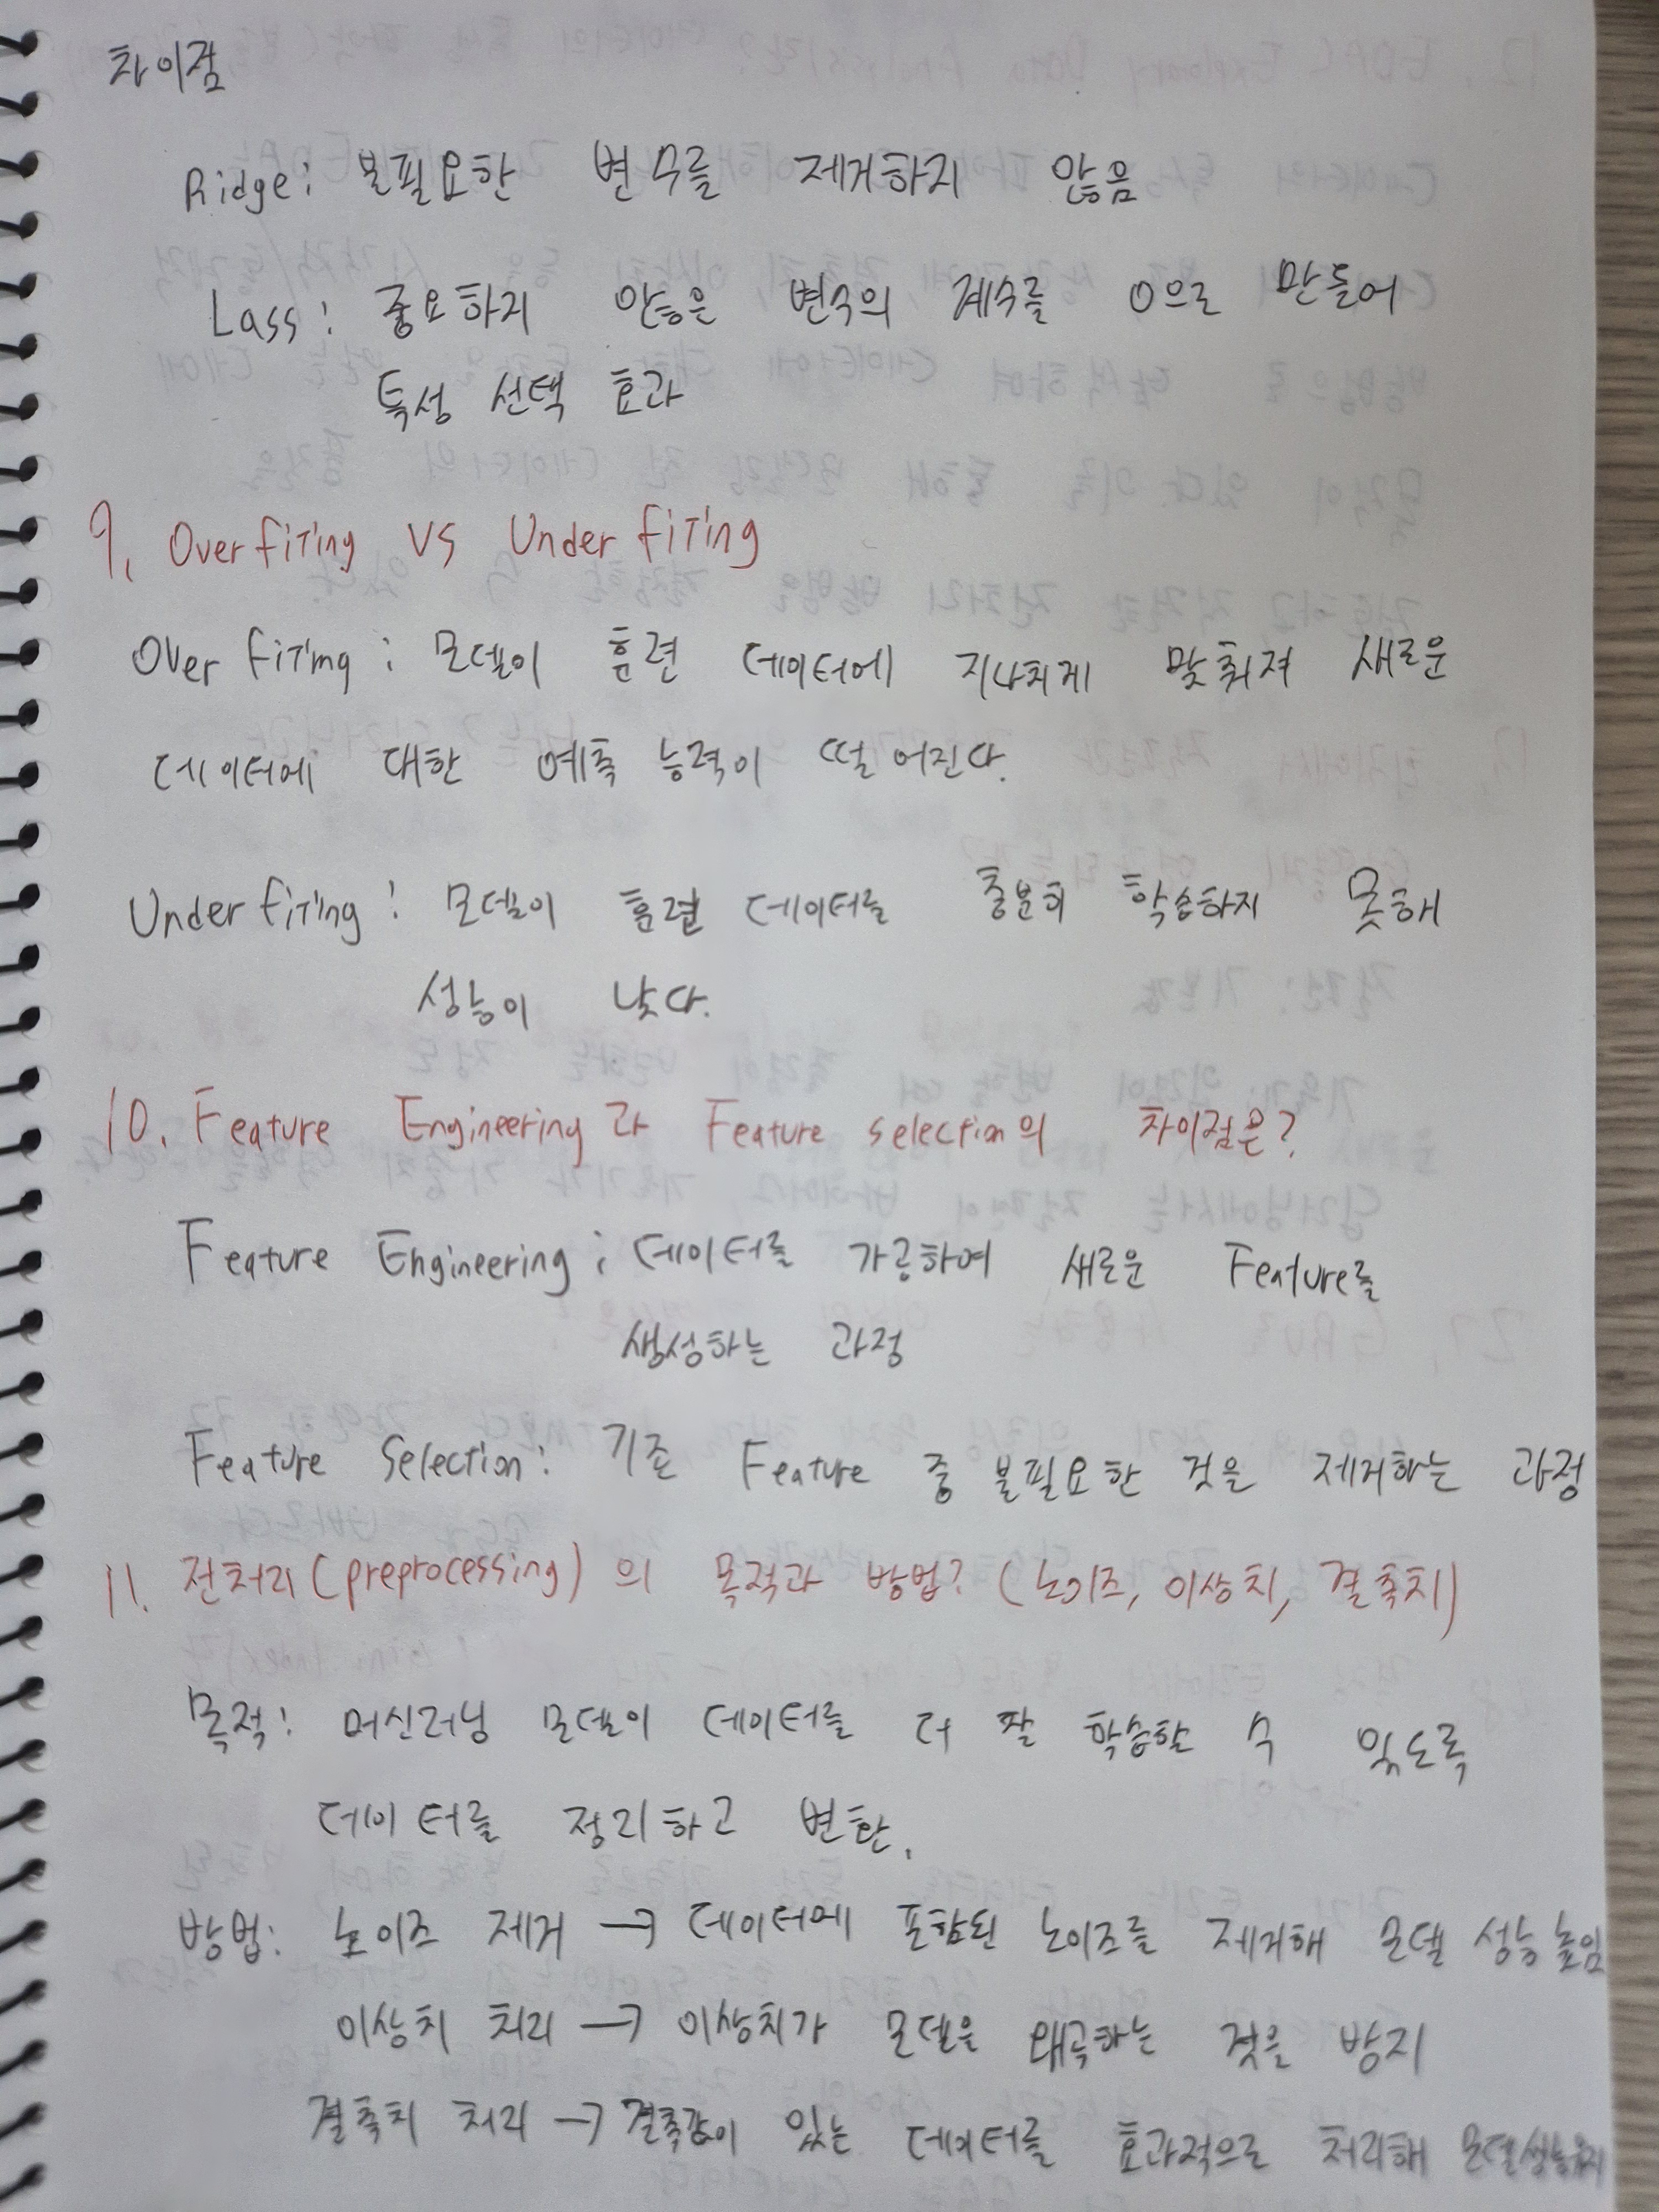 차이점
Ridge: 불필요한 변수를 제거하지 않음
Lass: 중요하지 않은 변수의 계수를 0으로 만들어
특성 선택 효과
9. Overfiting VS Underfiting
Overfiting: 모델이 훈련 데이터에 지나치게 맞춰져 새로운
데이터에 대한 예측 능력이 떨어진다.
Underfiting: 모델이 훈련 데이터를 충분히 학습하지 못해
성능이 낮다.
10. Feature Engineering과 Feature selection의 차이점은?
Feature Engineering: 데이터를 가공하여 새로운 Feature를
생성하는 과정
Feature Selection: 기존 Feature 중 불필요한 것을 제거하는 과정
11. 전처리(preprocessing)의 목적과 방법? (노이즈, 이상치, 결측치)
목적: 머신러닝 모델이 데이터를 더 잘 학습할 수 있도록
데이터를 정리하고 변환.
방법: 노이즈 제거 → 데이터에 포함된 노이즈를 제거해 모델 성능 높임
이상치 처리 → 이상치가 모델을 왜곡하는 것을 방지
결측치 처리 → 결측값이 있는 데이터를 효과적으로 처리해 모델성능